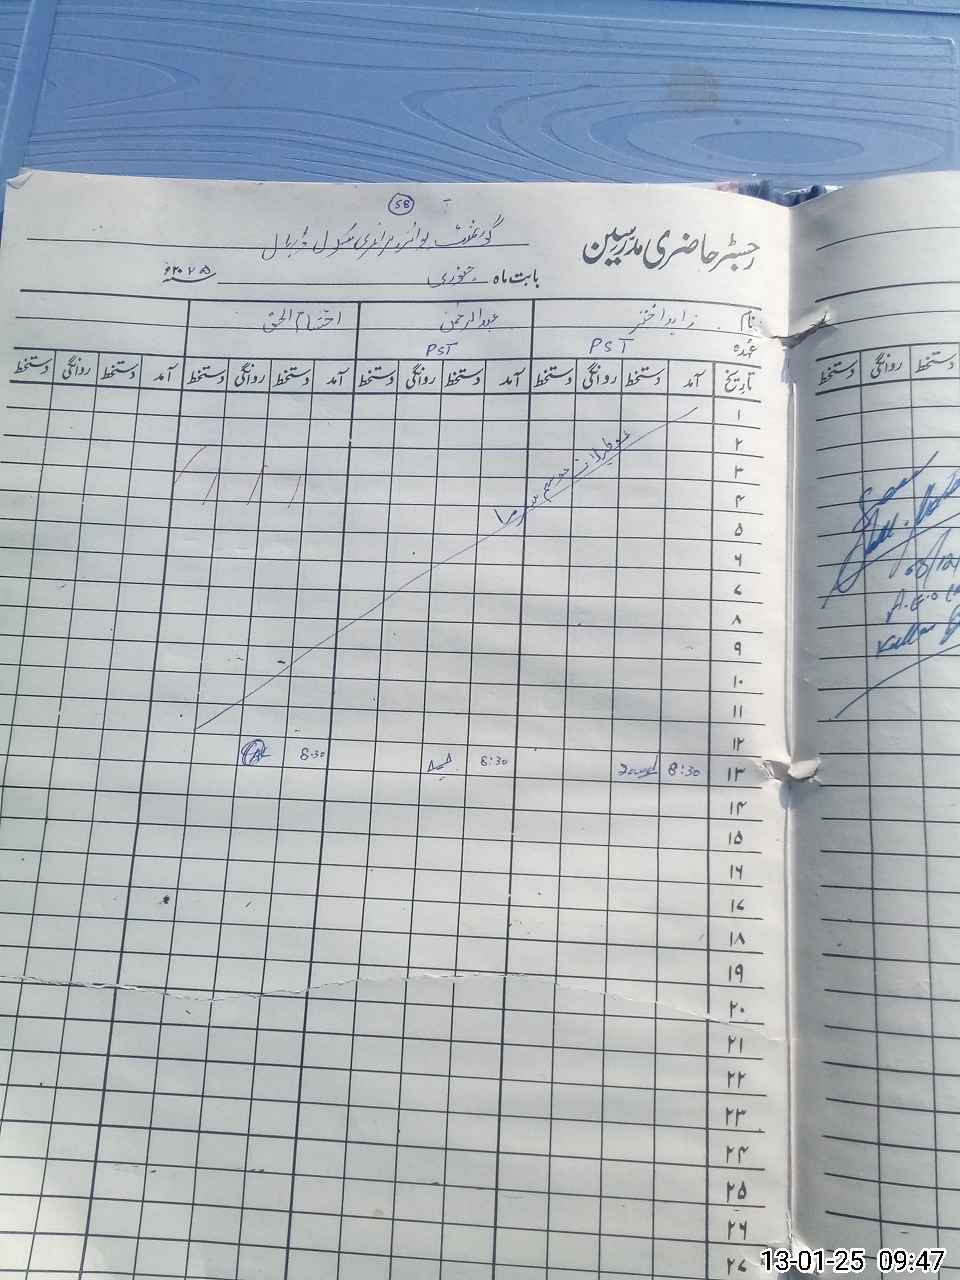 58
گورنمنٹ بوائز پرائمری سکول
رجسٹر حاضری مدرسین
بابت ماہ جنوری ۲۰۲۵ء
نام زاہد اختر عبدالرحمٰن
عہدہ PST PST
تاریخ آمد دستخط روانگی دستخط آمد دستخط روانگی دستخط آمد دستخط روانگی دستخط آمد دستخط روانگی دستخط
دستخط روانگی دستخط
۱
۲
۳
۴
۵
۶
۷
۸
۹
۱۰
۱۱
۱۲
۱۳ 8:30 8:30 8:30
۱۴
۱۵
۱۶
۱۷
۱۸
۱۹
۲۰
۲۱
۲۲
۲۳
۲۴
۲۵
۲۶
۲۷
تعطیلات موسم سرما
A.E.O
13-01-25 09:47